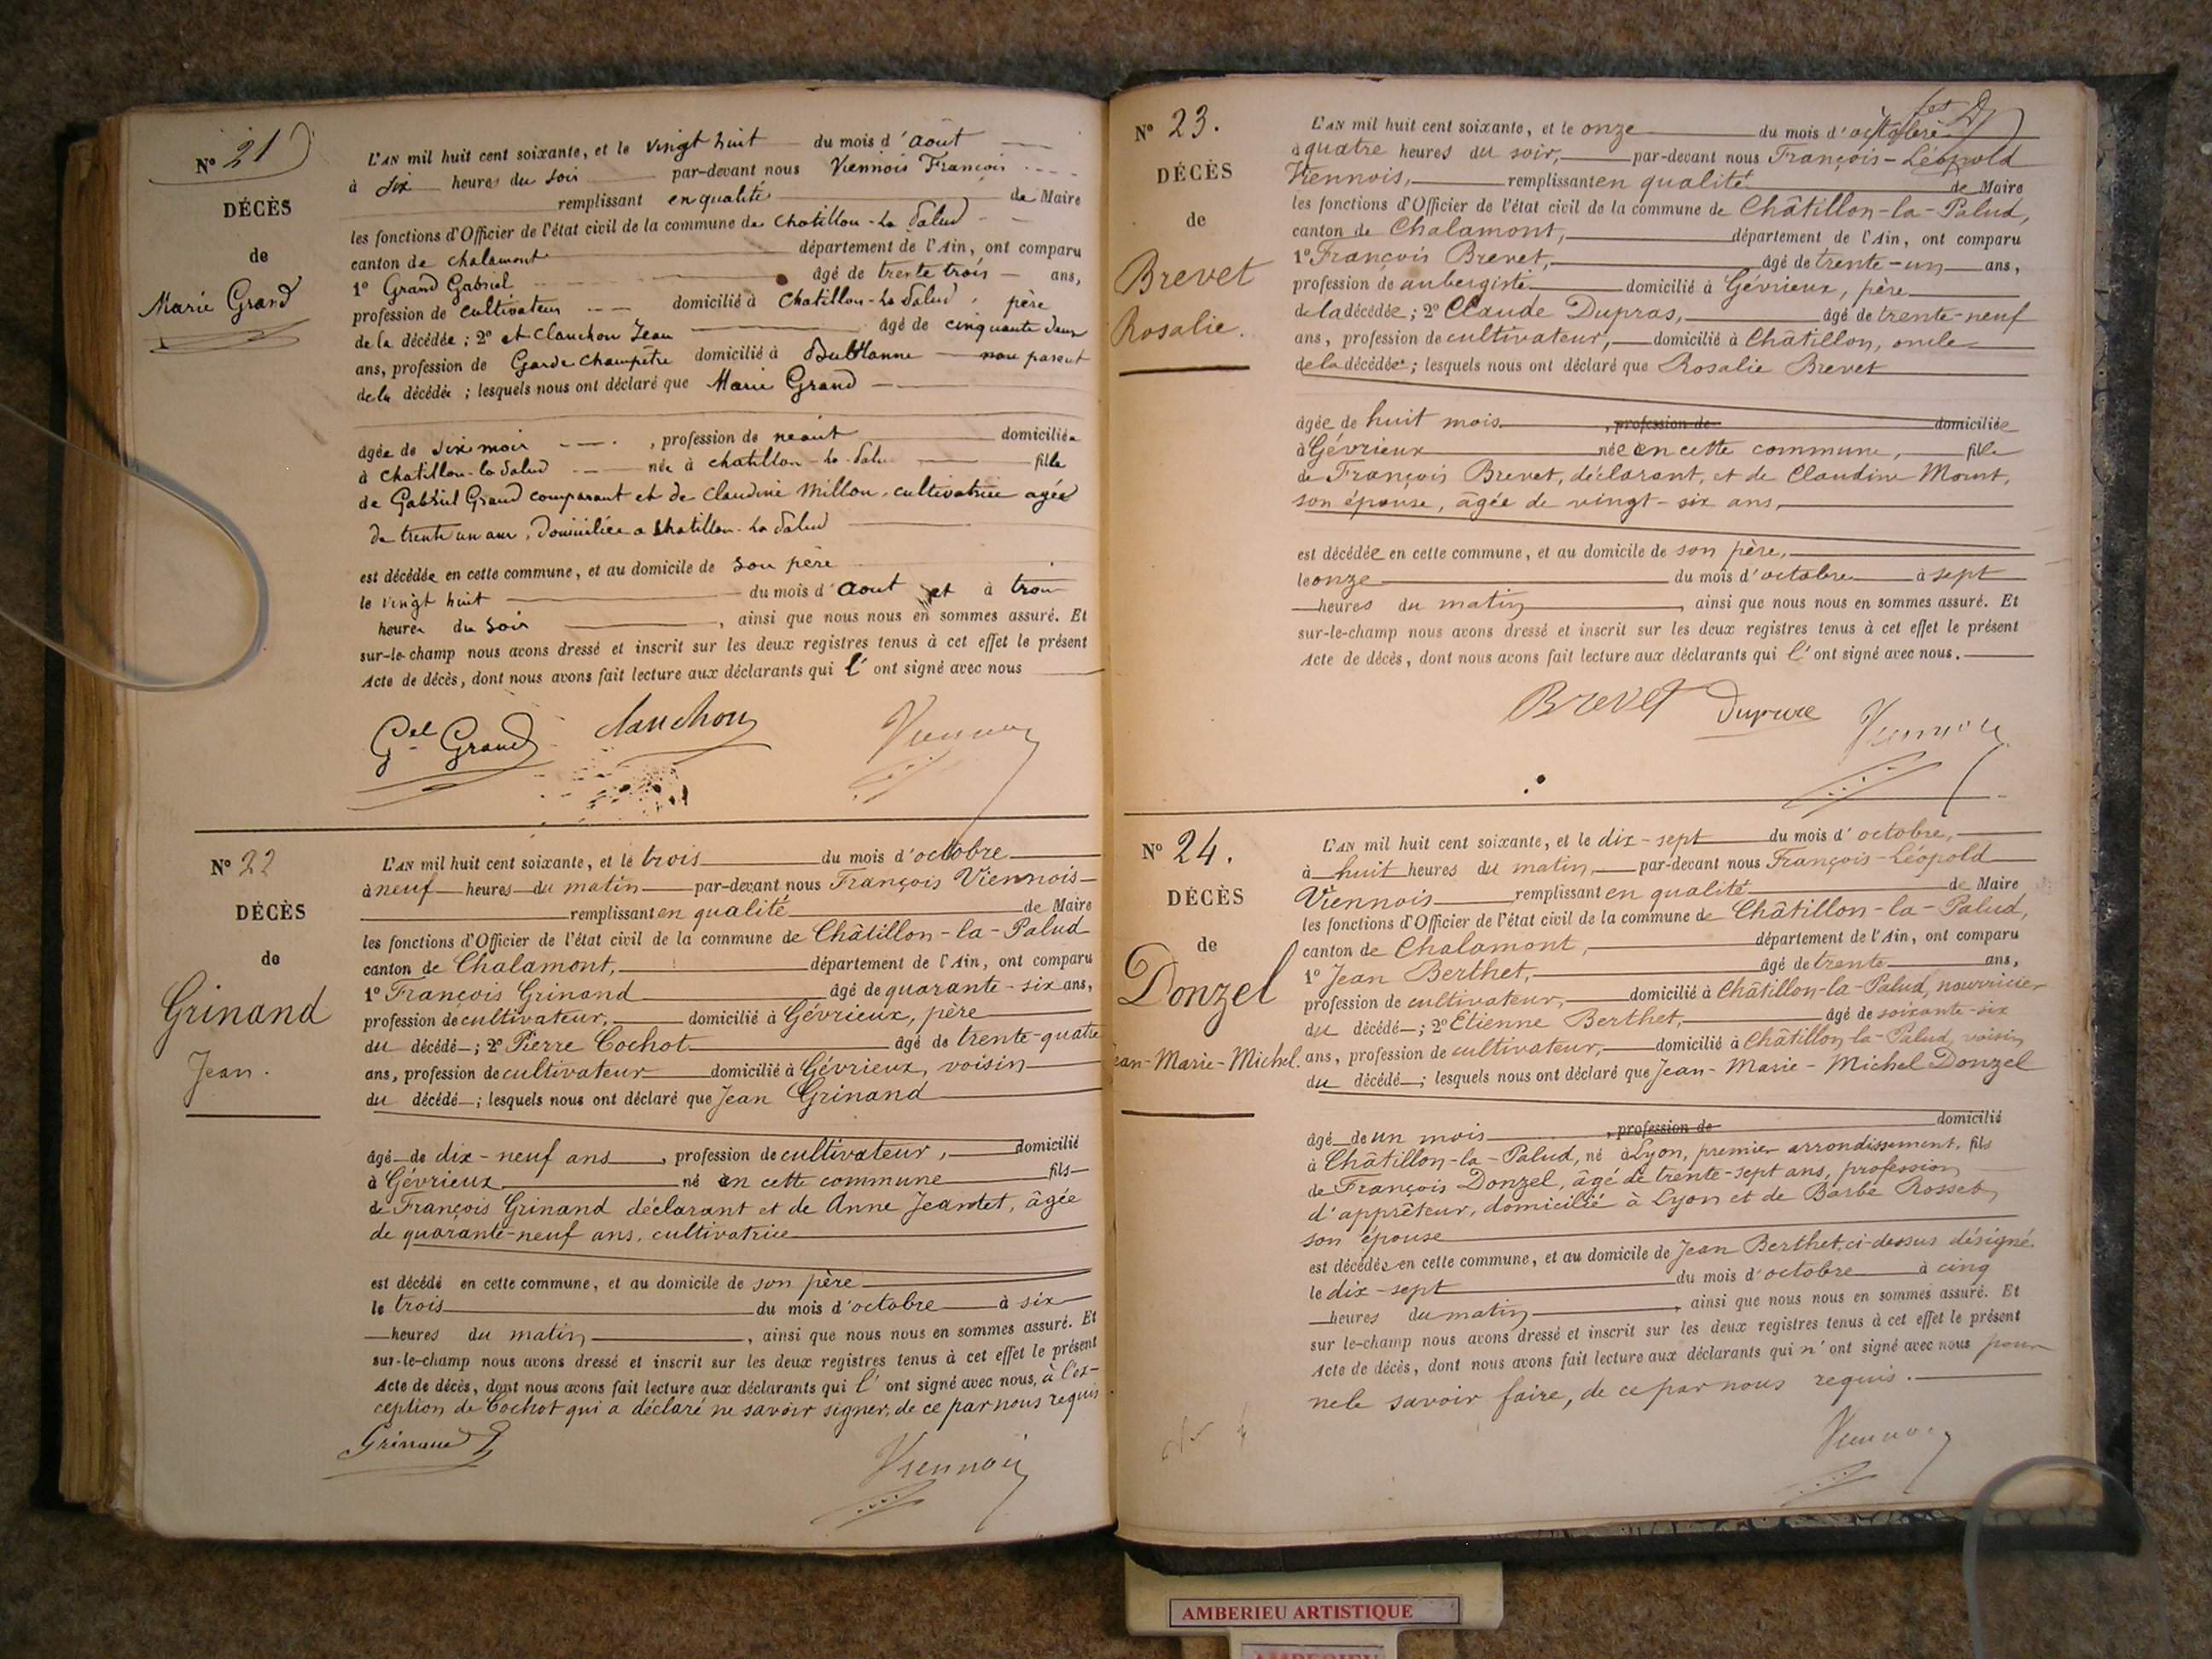 N° 21
DÉCÈS
de
Marie Grand
L'AN mil huit cent soixante, et le vingt huit du mois d'aout
à six heures du soir par-devant nous Viennois François
remplissant en qualité de Maire
les fonctions d'Officier de l'état civil de la commune de Chatillon-La Palud
canton de chalamont département de l'Ain, ont comparu
1° Grand Gabriel âgé de trente trois ans,
profession de cultivateur domicilié à Chatillon-La Palud, père
de la décédée ; 2° et Clauchon Jean âgé de cinquante deux
ans, profession de Garde champêtre domicilié à non parent
de la décédée ; lesquels nous ont déclaré que Marie Grand
âgée de six mois, profession de néant domiciliée
à chatillon-la Palud née à chatillon-la-Palu fille
de Gabriel Grand comparant et de Claudine Millon, cultivatrice agée
de trente un ans, domiciliée a Chatillon-La Palud
est décédée en cette commune, et au domicile de son père
le vingt huit du mois d'aout et à trois
heures du soir, ainsi que nous nous en sommes assuré. Et
sur-le-champ nous avons dressé et inscrit sur les deux registres tenus à cet effet le présent
Acte de décès, dont nous avons fait lecture aux déclarants qui l'ont signé avec nous
Gel Grand Clauchon Viennois
N° 22
DÉCÈS
de
Grinand
Jean.
L'AN mil huit cent soixante, et le trois du mois d'octobre
à neuf heures du matin par-devant nous François Viennois
remplissant en qualité de Maire
les fonctions d'Officier de l'état civil de la commune de Châtillon-la-Palud
canton de Chalamont, département de l'Ain, ont comparu
1° François Grinand âgé de quarante-six ans,
profession de cultivateur, domicilié à Gévrieux, père
du décédé ; 2° Pierre Cochot âgé de trente-quatre
ans, profession de cultivateur domicilié à Gévrieux, voisin
du décédé ; lesquels nous ont déclaré que Jean Grinand
âgé de dix-neuf ans, profession de cultivateur, domicilié
à Gévrieux né en cette commune fils
de François Grinand déclarant et de Anne Jeantet, âgée
de quarante-neuf ans, cultivatrice
est décédé en cette commune, et au domicile de son père
le trois du mois d'octobre à six
heures du matin, ainsi que nous nous en sommes assuré. Et
sur-le-champ nous avons dressé et inscrit sur les deux registres tenus à cet effet le présent
Acte de décès, dont nous avons fait lecture aux déclarants qui l'ont signé avec nous, à l'ex-
ception de Cochot qui a déclaré ne savoir signer, de ce par nous requis
Grinand Viennois
N° 23.
DÉCÈS
de
Brevet
Rosalie.
L'AN mil huit cent soixante, et le onze du mois d'octobre
à quatre heures du soir, par-devant nous François-Léopold
Viennois, remplissant en qualité de Maire
les fonctions d'Officier de l'état civil de la commune de Châtillon-la-Palud,
canton de Chalamont, département de l'Ain, ont comparu
1° François Brevet, âgé de trente-un ans,
profession de aubergiste domicilié à Gévrieux, père
de la décédée ; 2° Claude Dupras, âgé de trente-neuf
ans, profession de cultivateur, domicilié à Châtillon, oncle
de la décédée ; lesquels nous ont déclaré que Rosalie Brevet
âgée de huit mois, profession de domiciliée
à Gévrieux née en cette commune, fille
de François Brevet, déclarant, et de Claudine
son épouse, âgée de vingt-six ans,
est décédée en cette commune, et au domicile de son père,
le onze du mois d'octobre à sept
heures du matin, ainsi que nous nous en sommes assuré. Et
sur-le-champ nous avons dressé et inscrit sur les deux registres tenus à cet effet le présent
Acte de décès, dont nous avons fait lecture aux déclarants qui l'ont signé avec nous.
Brevet Viennois
N° 24.
DÉCÈS
de
Donzel
Jean-Marie-Michel.
L'AN mil huit cent soixante, et le dix-sept du mois d'octobre,
à huit heures du matin, par-devant nous François-Léopold
Viennois remplissant en qualité de Maire
les fonctions d'Officier de l'état civil de la commune de Châtillon-la-Palud,
canton de Chalamont, département de l'Ain, ont comparu
1° Jean Berthet, âgé de trente ans,
profession de cultivateur, domicilié à Châtillon-la-Palud, nourricier
du décédé ; 2° Etienne Berthet, âgé de soixante-six
ans, profession de cultivateur, domicilié à Châtillon-la-Palud, voisin
du décédé ; lesquels nous ont déclaré que Jean-Marie-Michel Donzel
âgé de un mois, profession de domicilié
à Châtillon-la-Palud, né à Lyon, premier arrondissement, fils
de François Donzel, âgé de trente-sept ans, profession
d'apprêteur, domicilié à Lyon et de Barbe Rosset,
son épouse
est décédée en cette commune, et au domicile de Jean Berthet, ci-dessus désigné
le dix-sept du mois d'octobre à cinq
heures du matin, ainsi que nous nous en sommes assuré. Et
sur le-champ nous avons dressé et inscrit sur les deux registres tenus à cet effet le présent
Acte de décès, dont nous avons fait lecture aux déclarants qui n'ont signé avec nous pour
ne le savoir faire, de ce par nous requis.
Viennois
AMBERIEU ARTISTIQUE
AMBERIEU